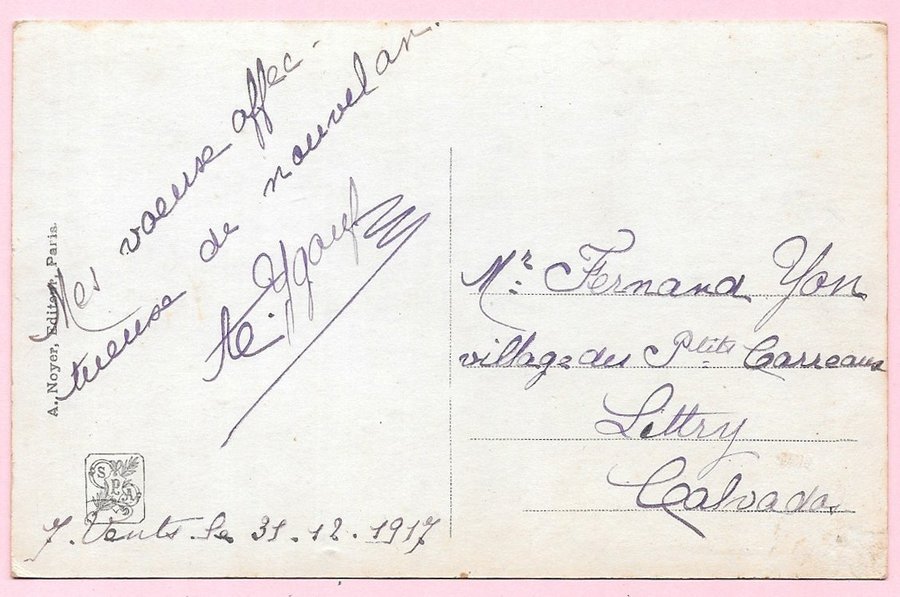 Mes voeuxe affec-
tueuse de nouvel an.
A. Noyer, Editeur, Paris.
SPA
7. Vents. le 31.12.1917
Mr. Fernand Yon
village des Ptits Carreaux
Littry
Calvados